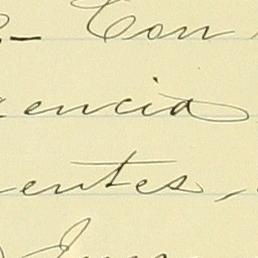 - Con
encia
entes,